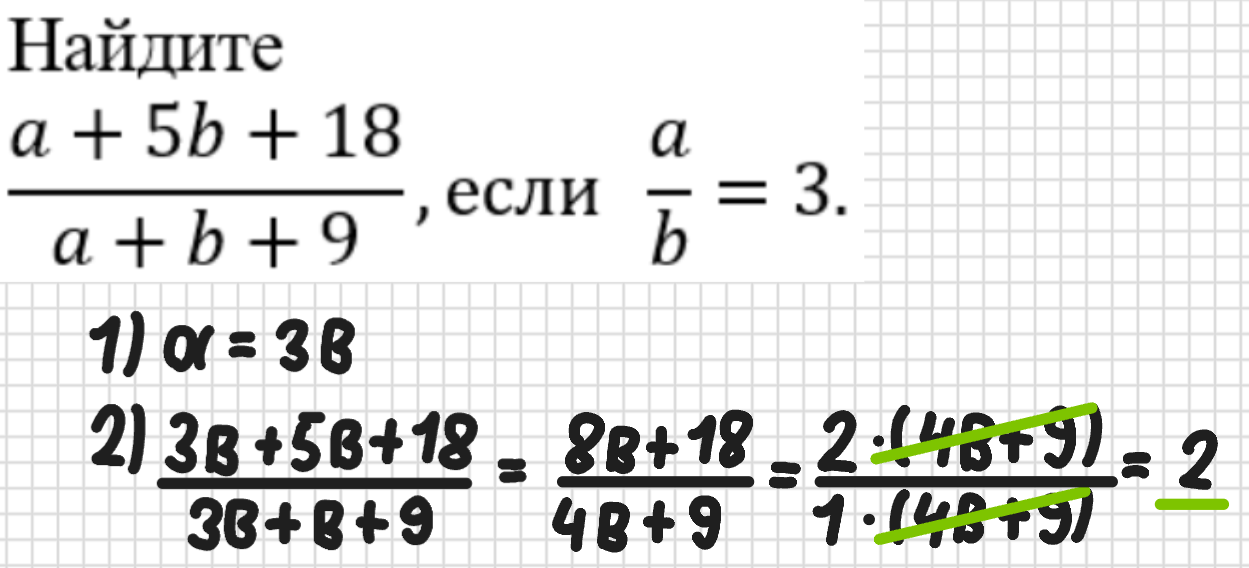 Найдите
(a + 5b + 18)/(a + b + 9), если a/b = 3.
1) a = 3в
2) (3в+5в+18)/(3в+в+9) = (8в+18)/(4в+9) = (2·(4в+9))/(1·(4в+9)) = 2